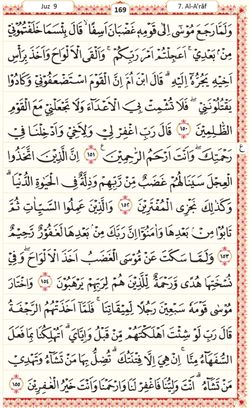 Juz 9 169 7. Al-A'râf
وَلَمَّا رَجَعَ مُوْسٰٓى اِلٰى قَوْمِهٖ غَضْبَانَ اَسِفًا ۙ قَالَ بِئْسَمَا خَلَفْتُمُوْنِيْ
مِنْۢ بَعْدِيْ ۚ اَعَجِلْتُمْ اَمْرَ رَبِّكُمْ ۚ وَاَلْقَى الْاَلْوَاحَ وَاَخَذَ بِرَأْسِ
اَخِيْهِ يَجُرُّهٗٓ اِلَيْهِ ؕ قَالَ ابْنَ اُمَّ اِنَّ الْقَوْمَ اسْتَضْعَفُوْنِيْ وَكَادُوْا
يَقْتُلُوْنَنِيْ ۖ فَلَا تُشْمِتْ بِيَ الْاَعْدَآءَ وَلَا تَجْعَلْنِيْ مَعَ الْقَوْمِ
الظّٰلِمِيْنَ ۝١٥٠ قَالَ رَبِّ اغْفِرْ لِيْ وَلِاَخِيْ وَاَدْخِلْنَا فِيْ
رَحْمَتِكَ ۖ وَاَنْتَ اَرْحَمُ الرّٰحِمِيْنَ ۝١٥١ اِنَّ الَّذِيْنَ اتَّخَذُوا
الْعِجْلَ سَيَنَالُهُمْ غَضَبٌ مِّنْ رَّبِّهِمْ وَذِلَّةٌ فِي الْحَيٰوةِ الدُّنْيَا ؕ
وَكَذٰلِكَ نَجْزِي الْمُفْتَرِيْنَ ۝١٥٢ وَالَّذِيْنَ عَمِلُوا السَّيِّاٰتِ ثُمَّ
تَابُوْا مِنْۢ بَعْدِهَا وَاٰمَنُوْٓا ۫ اِنَّ رَبَّكَ مِنْۢ بَعْدِهَا لَغَفُوْرٌ رَّحِيْمٌ
۝١٥٣ وَلَمَّا سَكَتَ عَنْ مُّوْسَى الْغَضَبُ اَخَذَ الْاَلْوَاحَ ۖ وَفِيْ
نُسْخَتِهَا هُدًى وَّرَحْمَةٌ لِّلَّذِيْنَ هُمْ لِرَبِّهِمْ يَرْهَبُوْنَ ۝١٥٤ وَاخْتَارَ
مُوْسٰى قَوْمَهٗ سَبْعِيْنَ رَجُلًا لِّمِيْقَاتِنَا ۚ فَلَمَّآ اَخَذَتْهُمُ الرَّجْفَةُ
قَالَ رَبِّ لَوْ شِئْتَ اَهْلَكْتَهُمْ مِّنْ قَبْلُ وَاِيَّايَ ؕ اَتُهْلِكُنَا بِمَا فَعَلَ
السُّفَهَآءُ مِنَّا ۚ اِنْ هِيَ اِلَّا فِتْنَتُكَ ؕ تُضِلُّ بِهَا مَنْ تَشَآءُ وَتَهْدِيْ
مَنْ تَشَآءُ ؕ اَنْتَ وَلِيُّنَا فَاغْفِرْ لَنَا وَارْحَمْنَا وَاَنْتَ خَيْرُ الْغٰفِرِيْنَ ۝١٥٥